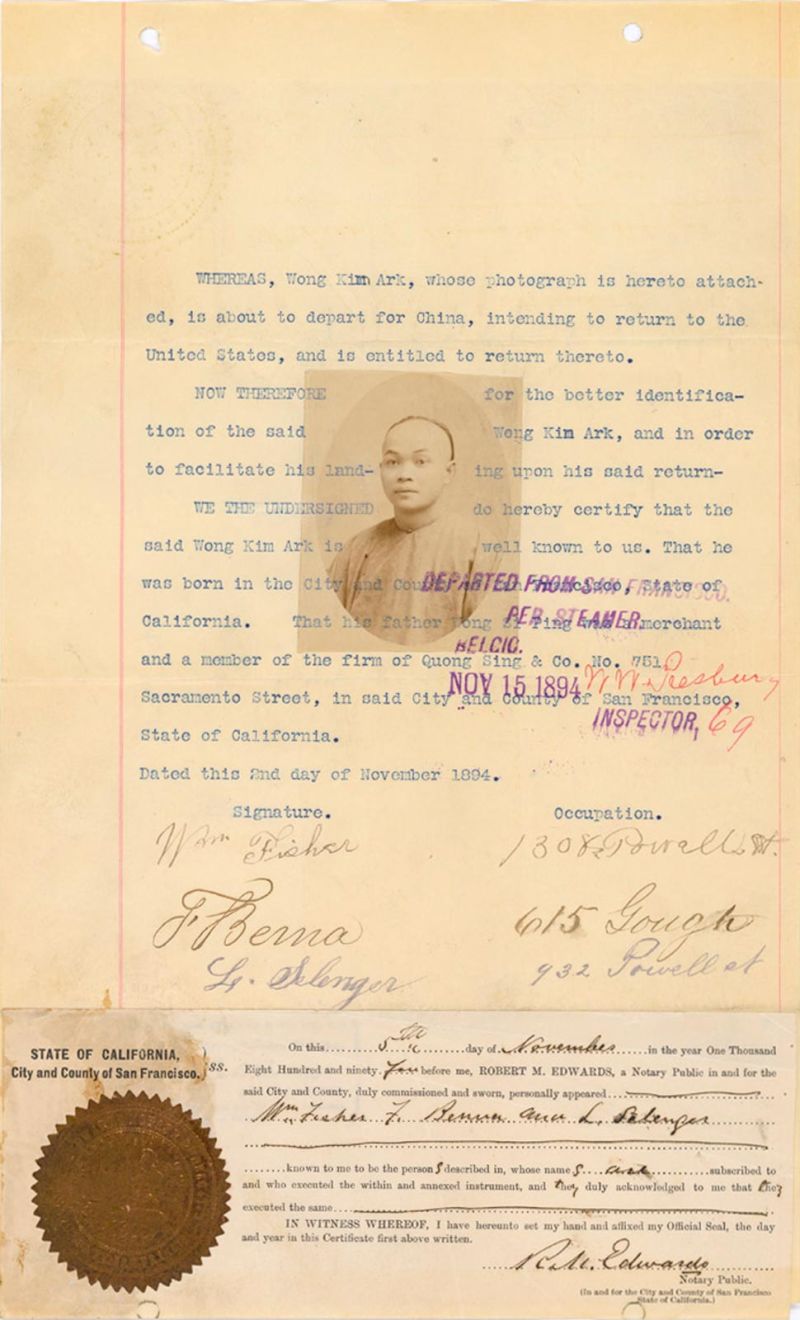 WHEREAS, Wong Kim Ark, whose photograph is hereto attach-
ed, is about to depart for China, intending to return to the
United States, and is entitled to return thereto.
NOW THEREFORE for the better identifica-
tion of the said Wong Kim Ark, and in order
to facilitate his land- ing upon his said return-
WE THE UNDERSIGNED do hereby certify that the
said Wong Kim Ark is well known to us. That he
was born in the City and County of San Francisco, State of
DEPARTED FROM SAN FRANCISCO.
California. That his father Wong Si Ping was a merchant
PER STEAMER.
BELGIC.
and a member of the firm of Quong Sing & Co. No. 751
NOV 15 1894 W.W. Presbury
Sacramento Street, in said City and County of San Francisco,
INSPECTOR, 69
State of California.
Dated this 2nd day of November 1894.
Signature. Occupation.
Wm Fisher 1308 Powell St.
F Berna 615 Gough
L. Selenger 932 Powell st
STATE OF CALIFORNIA,
City and County of San Francisco. ss.
On this 5th day of November in the year One Thousand
Eight Hundred and ninety four before me, ROBERT M. EDWARDS, a Notary Public in and for the
said City and County, duly commissioned and sworn, personally appeared
Wm Fisher F. Benna and L. Selenger
known to me to be the person s described in, whose name s are subscribed to
and who executed the within and annexed instrument, and they duly acknowledged to me that they
executed the same
IN WITNESS WHEREOF, I have hereunto set my hand and affixed my Official Seal, the day
and year in this Certificate first above written.
R.M. Edwards
Notary Public.
(In and for the City and County of San Francisco
State of California.)